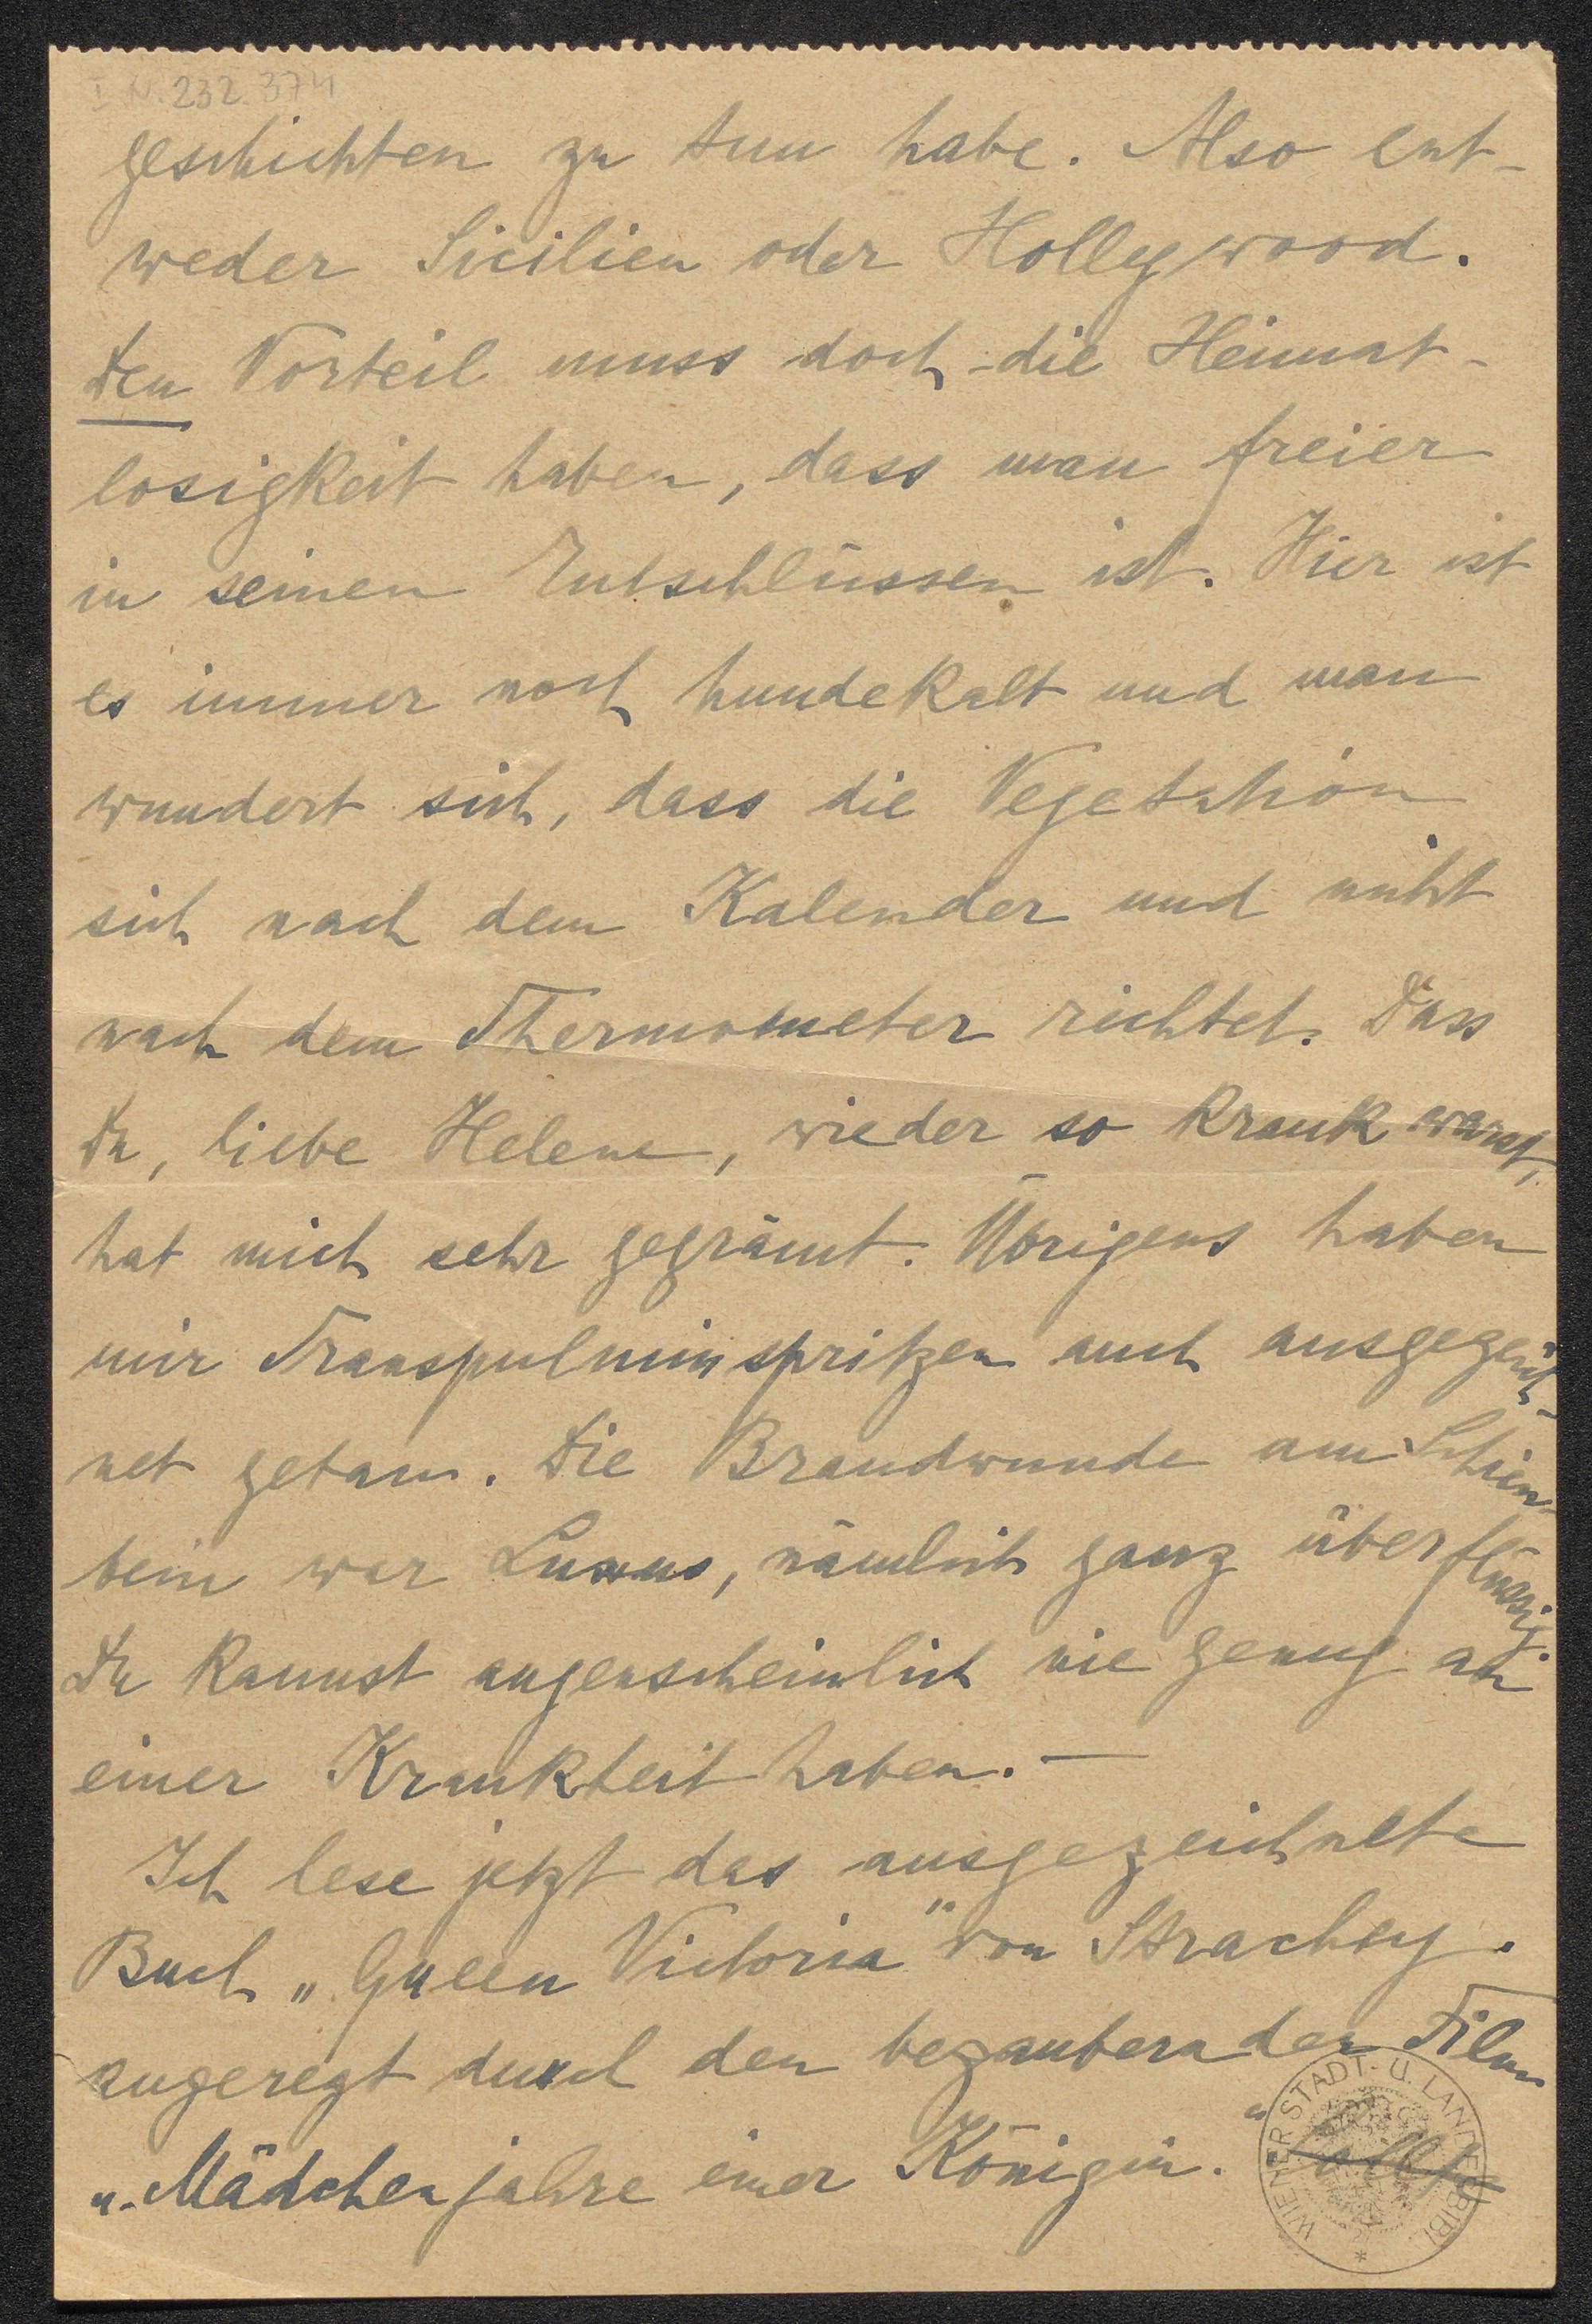 I.N. 232.374
geschichten zu tun habe. Also ent-
weder Sicilien oder Hollywood.
Den Vorteil muss doch die Heimat-
losigkeit haben, dass man freier
in seinen Entschlüssen ist. Hier ist
es immer noch hundekalt und man
wundert sich, dass die Vegetation
sich nach dem Kalender und nicht
nach dem Thermometer richtet. Dass
Du, liebe Helene, wieder so krank warst,
hat mich sehr gegrämt. Übrigens haben
mir Transpulminspritzen auch ausgezeich-
net getan. Die Brandwunde am Schien-
bein war Luxus, nämlich ganz überflüssig.
Du kannst augenscheinlich nie genug an
einer Krankheit haben. —
Ich lese jetzt das ausgezeichnete
Buch „Queen Victoria" von Strachey.
angeregt durch den bezaubernden Film
„Mädchenjahre einer Königin."
WIENER STADT- U. LANDESBIBL. *